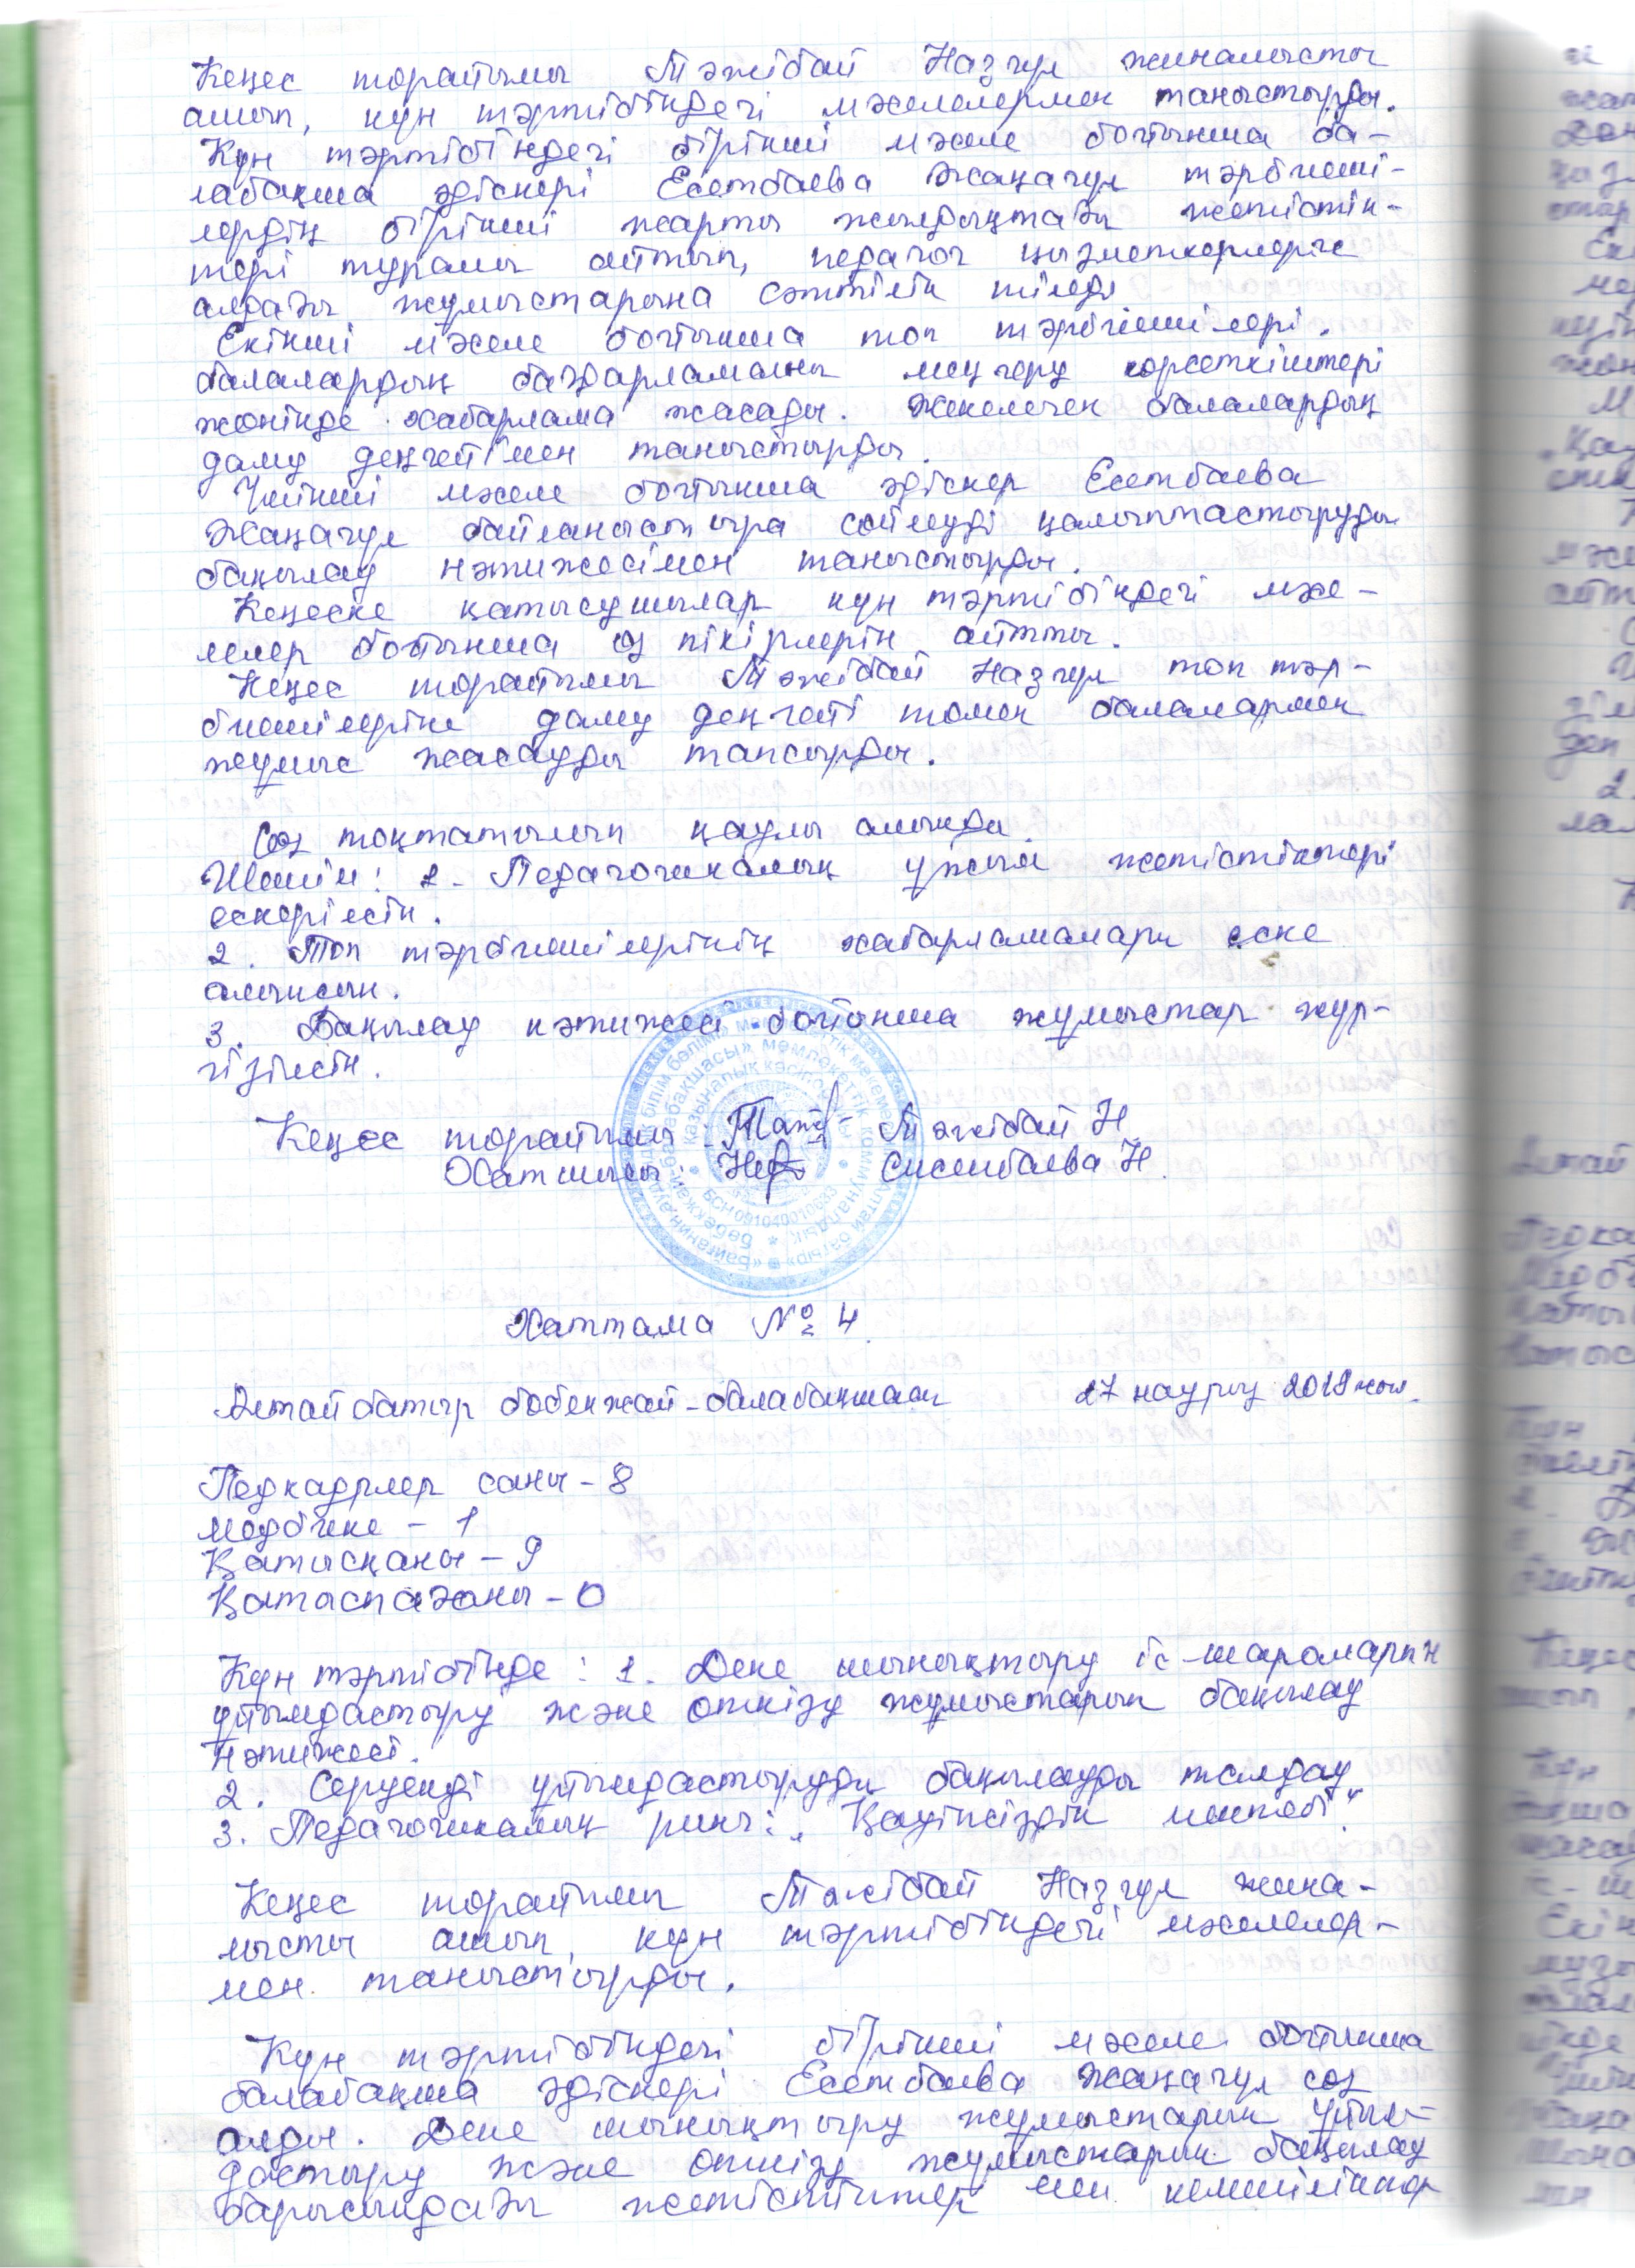 Кеңес торайымы Тәжібай Назгүл жиналысты
ашып, күн тәртібіндегі мәселелермен таныстырды.
Күн тәртібіндегі бірінші мәселе бойынша ба-
лабақша әдіскері Есетбаева Жаңагүл тәрбиеші-
лердің бірінші жарты жылдықтағы жетістік-
тері туралы айтып, педагог қызметкерлерге
алдағы жұмыстарына сәттілік тіледі
Екінші мәселе бойынша топ тәрбиешілері.
балалардың бағдарламаны меңгеру көрсеткіштері
жөнінде хабарлама жасады. Жекелеген балалардың
даму деңгейімен таныстырды.
Үшінші мәселе бойынша әдіскер Есетбаева
Жаңагүл байланыстыра сөйлеуді қалыптастыруды
бақылау нәтижесімен таныстырды.
Кеңеске қатысушылар күн тәртібіндегі мәсе-
лелер бойынша өз пікірлерін айтты.
Кеңес торайымы Тәжібай Назгүл топ тәр-
биешілеріне даму деңгейі төмен балалармен
жұмыс жасауды тапсырды.
Сөз тоқтатылып қаулы алынды.
Шешім: 1. Педагогикалық ұжым жетістіктері
ескерілсін.
2. Топ тәрбиешілерінің хабарламалары еске
алынсын.
3. Бақылау нәтижесі бойынша жұмыстар жүр-
гізілсін.
Кеңес торайымы: Тәжібай Н
Хатшысы: Сисенбаева Н.
Хаттама №4.
Алтай батыр бөбекжай-балабақшасы 27 наурыз 2019 жыл.
Педкадрлер саны - 8
Медбике - 1
Қатысқаны - 9
Қатыспағаны - 0
Күн тәртібінде: 1. Дене шынықтыру іс-шараларын
ұйымдастыру және өткізу жұмыстарын бақылау
нәтижесі.
2. Серуенді ұйымдастыруды бақылауды талдау
3. Педагогикалық ринг: „Қауіпсіздік мектебі".
Кеңес торайымы Тәжібай Назгүл жина-
лысты ашып, күн тәртібіндегі мәселелер-
мен таныстырды.
Күн тәртібіндегі бірінші мәселе бойынша
балабақша әдіскері Есетбаева Жаңагүл сөз
алды. Дене шынықтыру жұмыстарын ұйым-
дастыру және өткізу жұмыстарын бақылау
барысындағы жетістіктер мен кемшіліктер